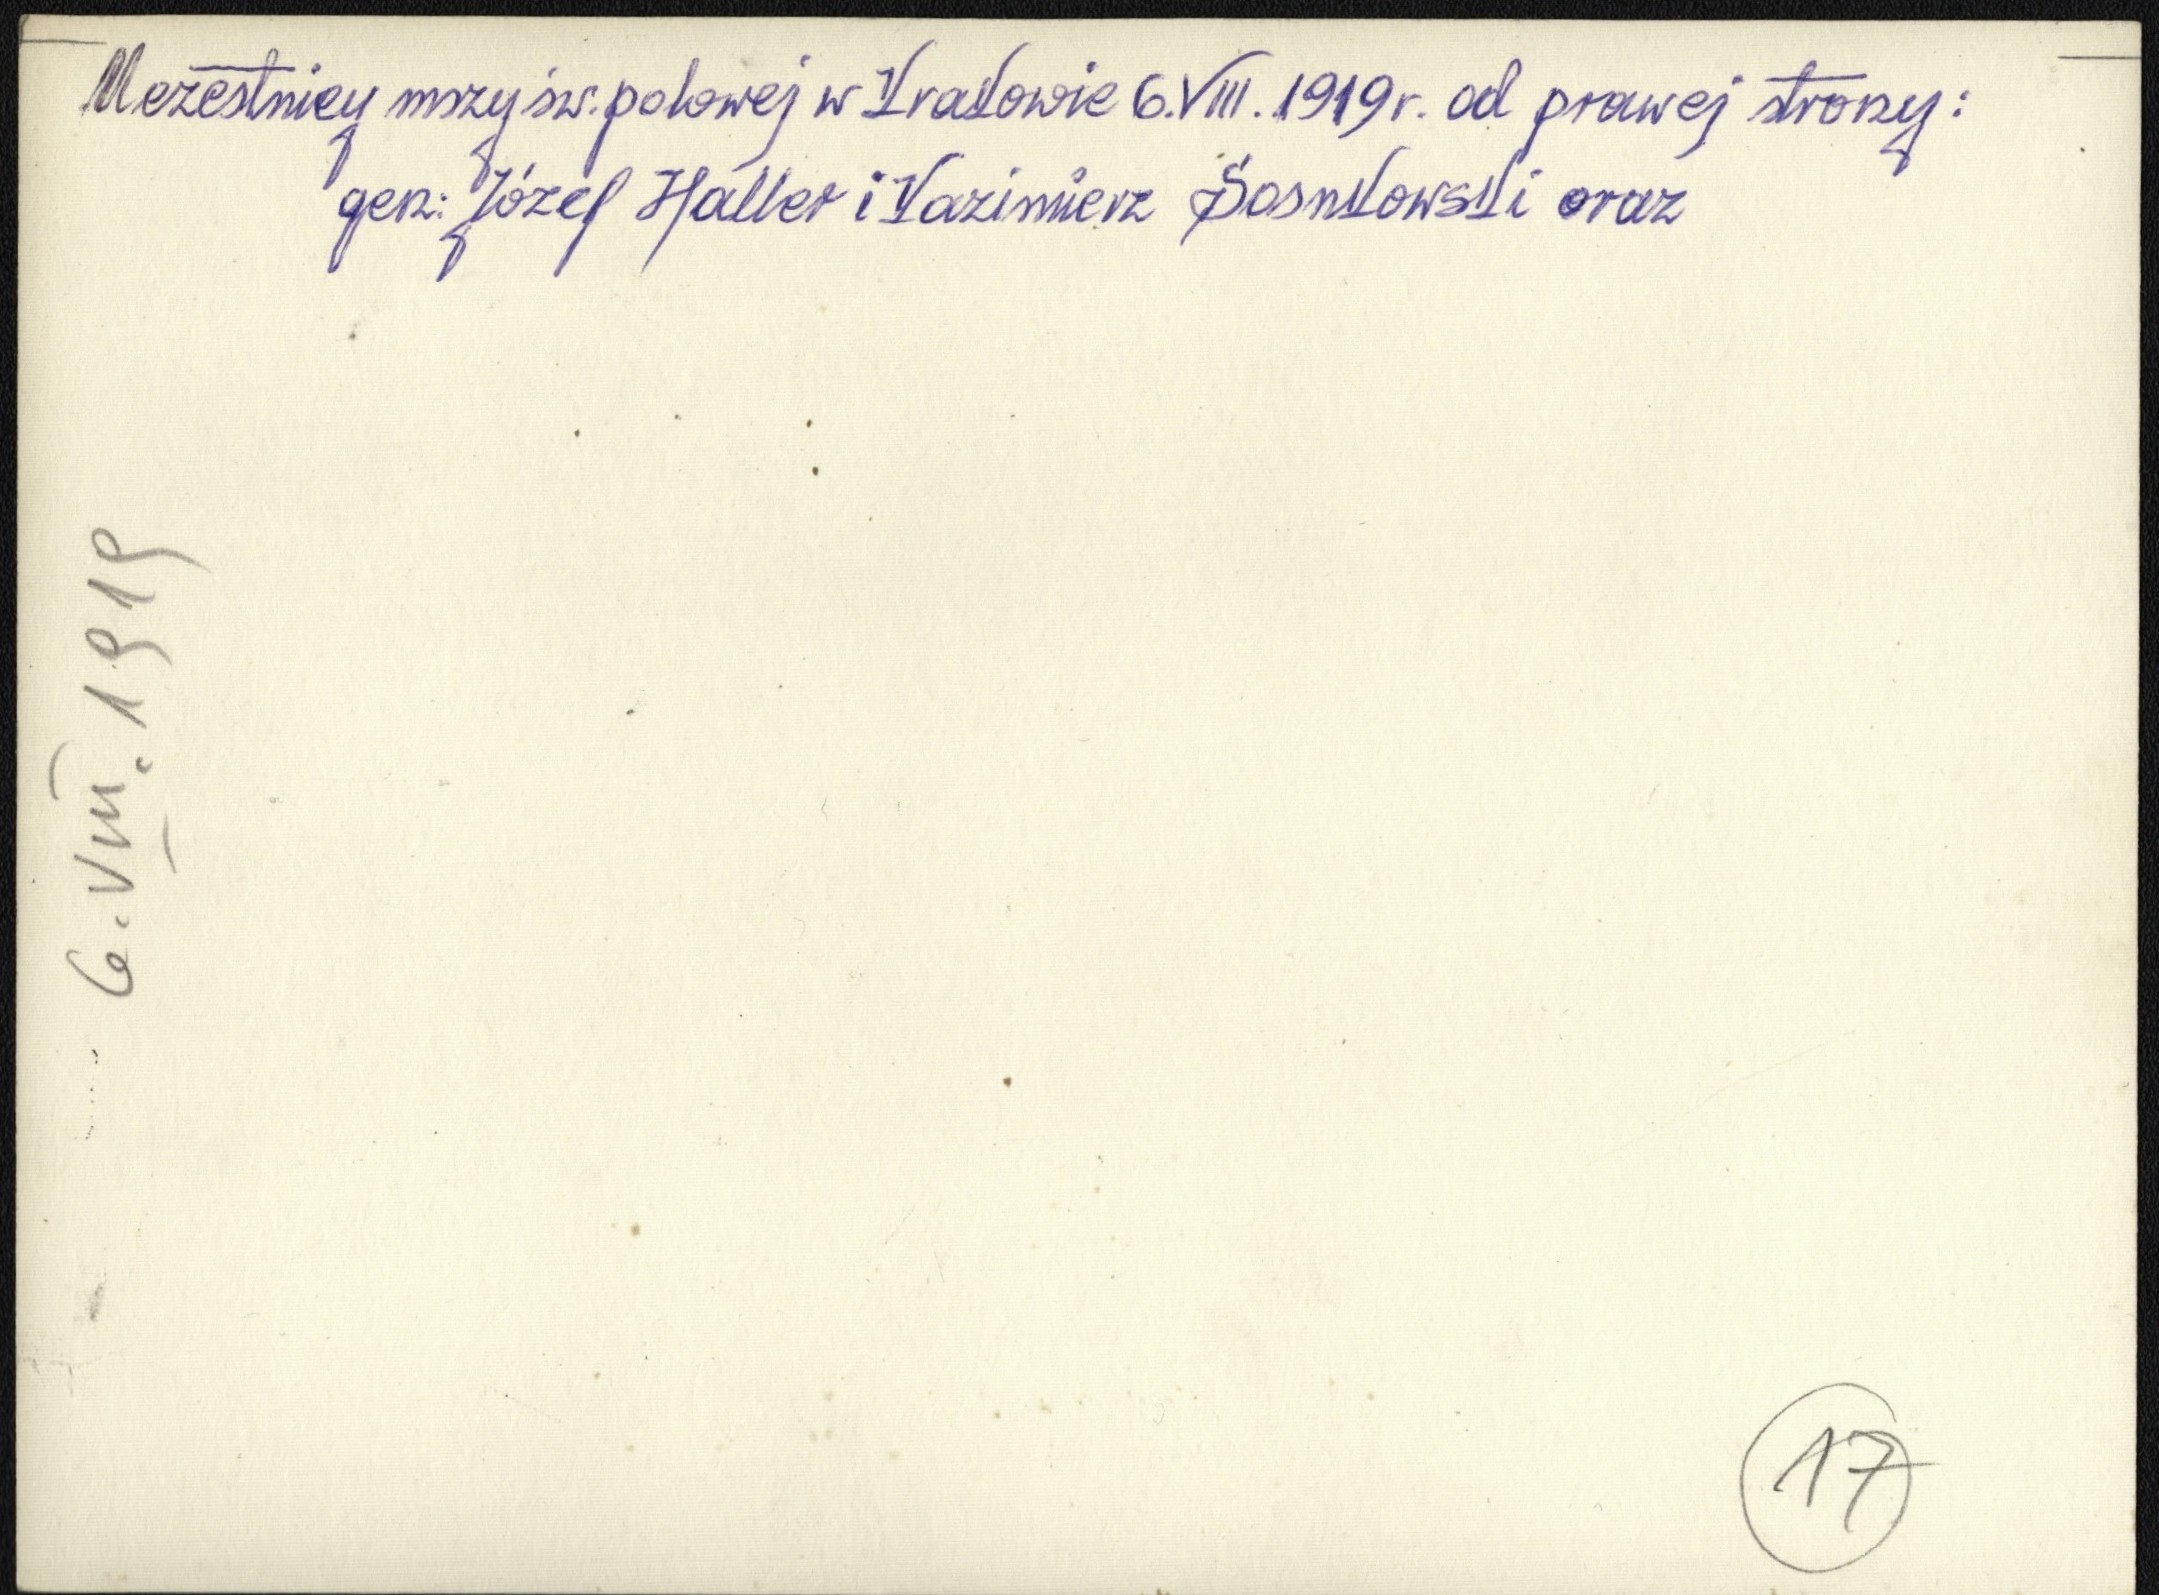 Uczestnicy mszy św. polowej w Krakowie 6.VIII.1919r. od prawej strony:
gen: Józef Haller i Kazimierz Sosnkowski oraz
6.VIII.1919
17